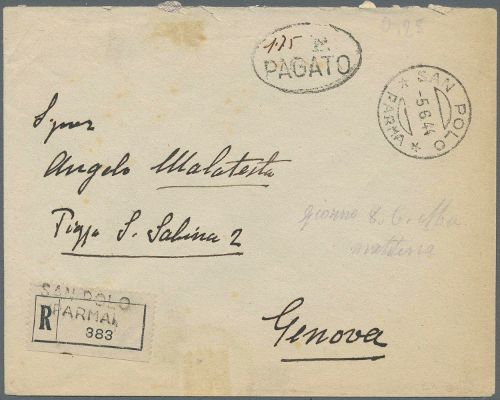 1.75
PAGATO
SAN POLO
-5.6.44
* PARMA *
Angelo Malatesta
S. Sabina 2
giorno 8.6.
mattina
SAN POLO
(PARMA)
R 383
Genova